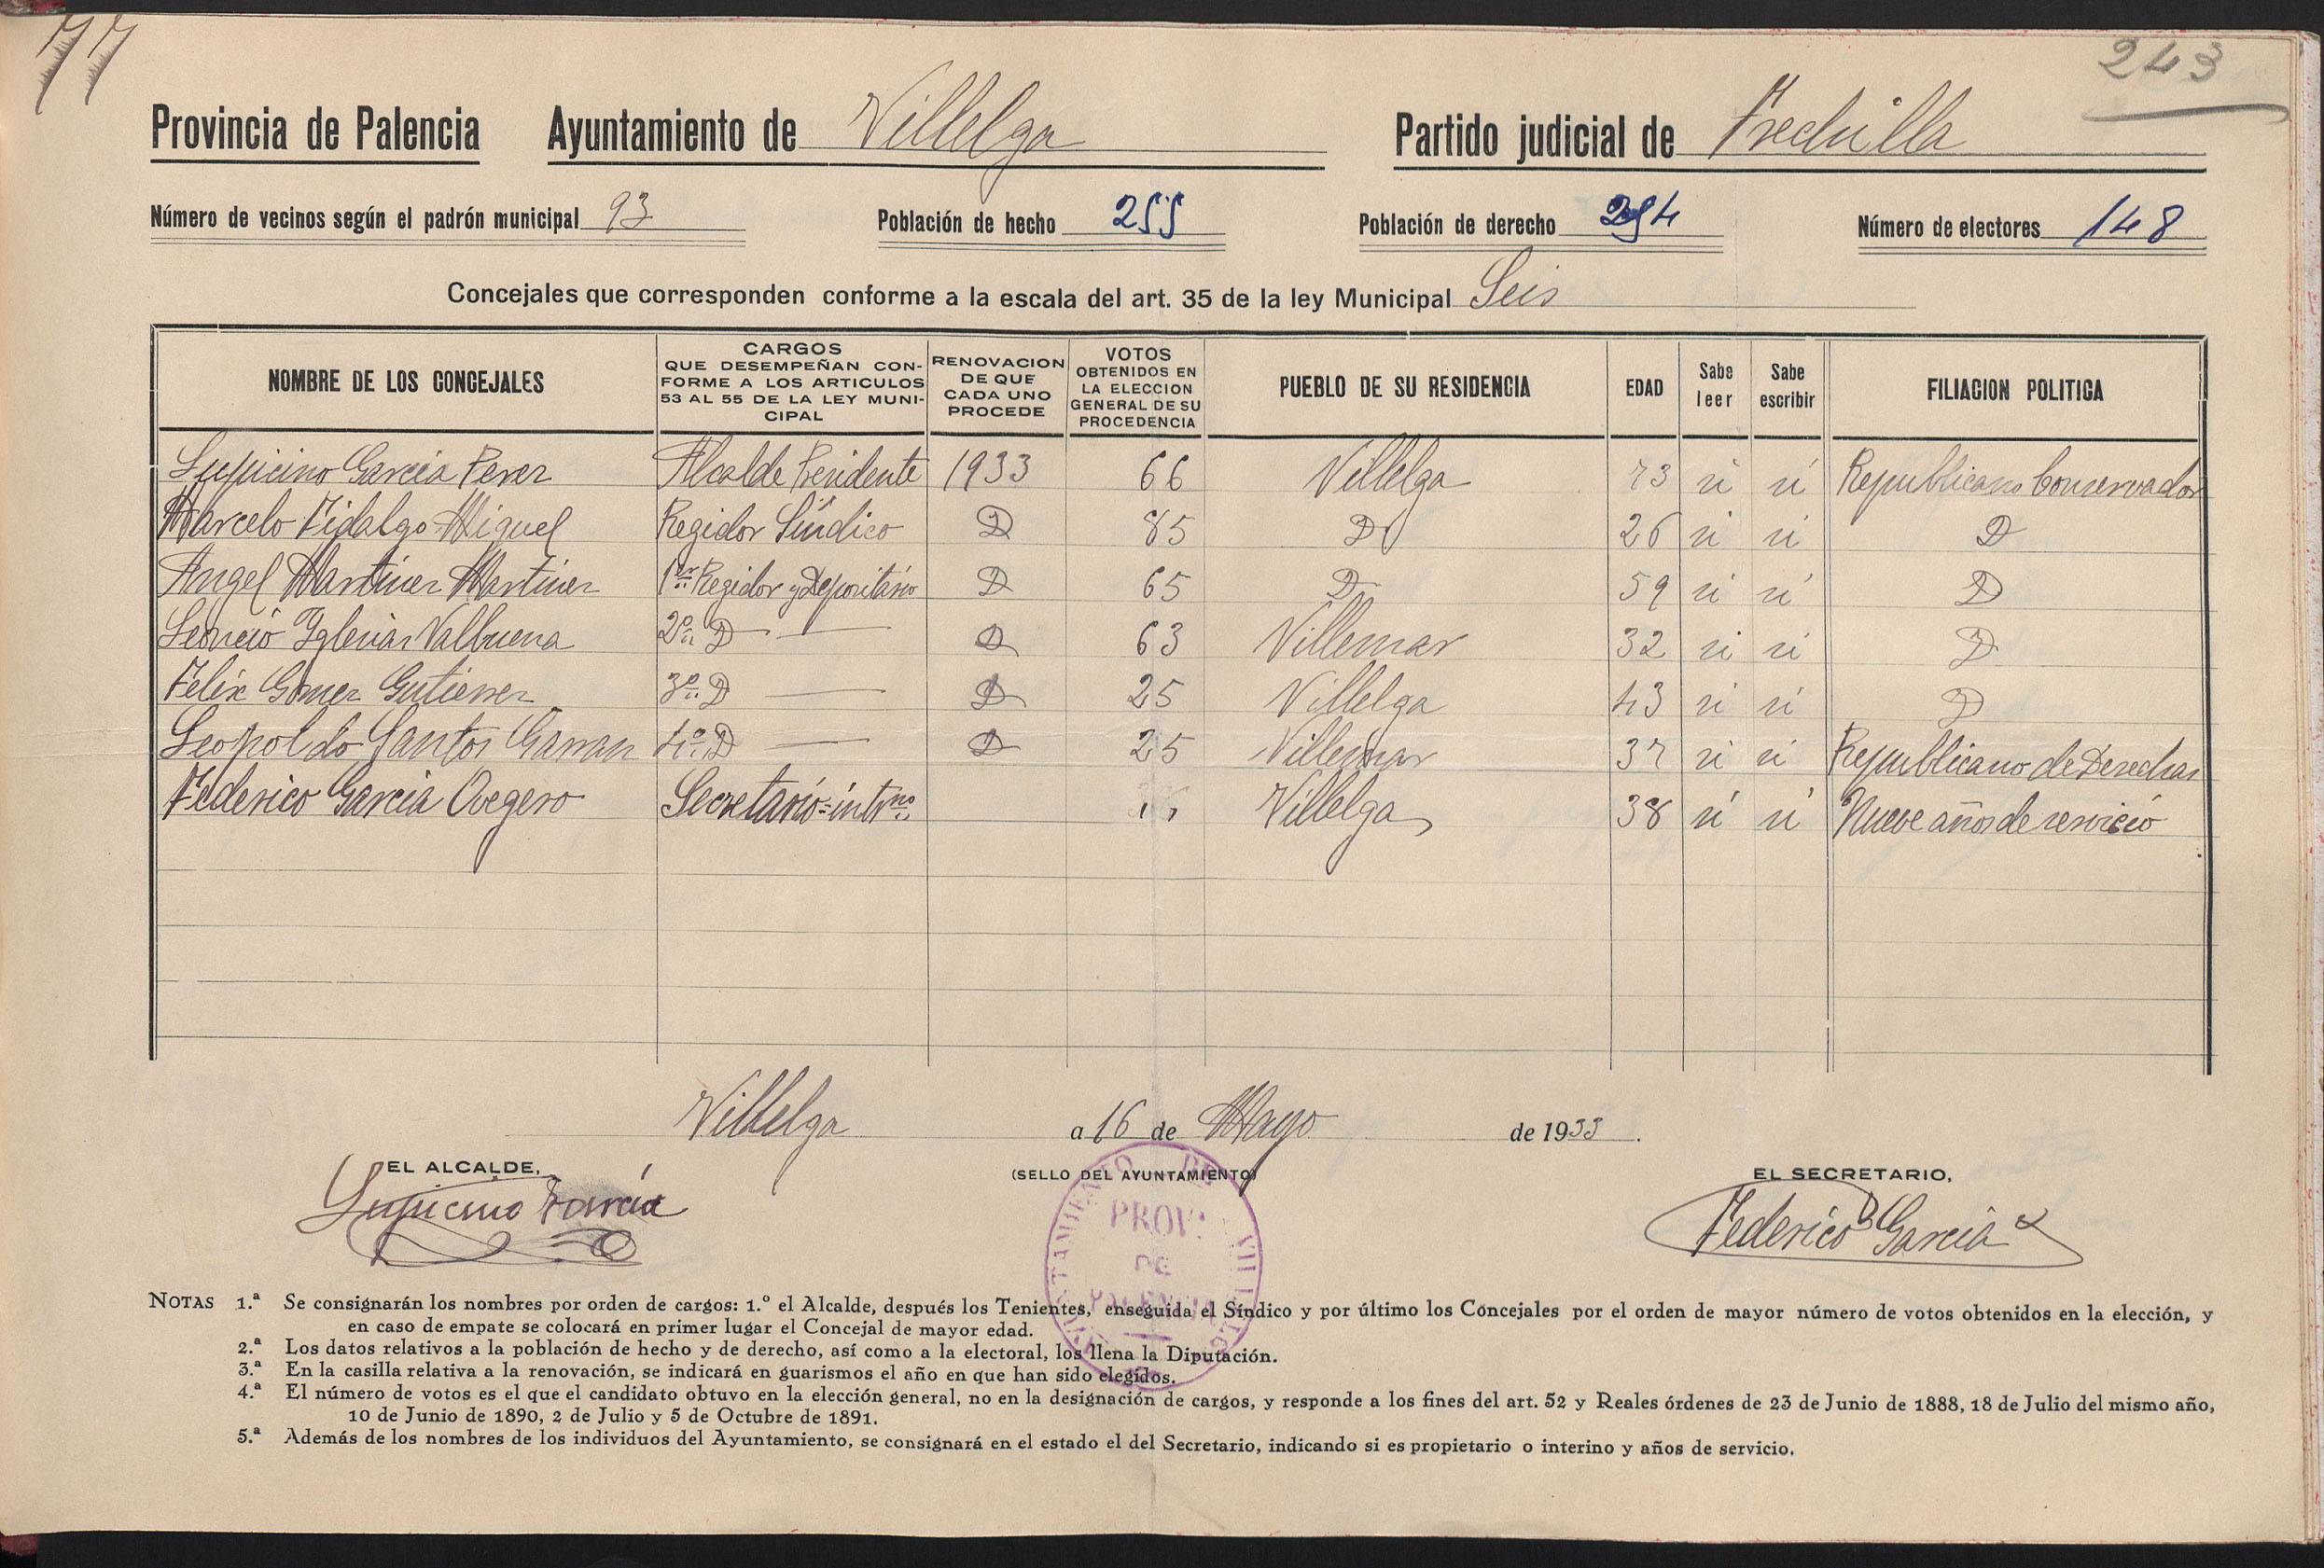 77
243
Provincia de Palencia Ayuntamiento de Villelga Partido judicial de Frechilla
Número de vecinos según el padrón municipal 93 Población de hecho 255 Población de derecho 254 Número de electores 148
Concejales que corresponden conforme a la escala del art. 35 de la ley Municipal Seis
NOMBRE DE LOS CONCEJALES CARGOS QUE DESEMPEÑAN CONFORME A LOS ARTICULOS 53 AL 55 DE LA LEY MUNICIPAL RENOVACION DE QUE CADA UNO PROCEDE VOTOS OBTENIDOS EN LA ELECCION GENERAL DE SU PROCEDENCIA PUEBLO DE SU RESIDENCIA EDAD Sabe leer Sabe escribir FILIACION POLITICA
Lupicino García Perez Alcalde Presidente 1933 66 Villelga 73 si si Republicano Conservador
Marcelo Fidalgo Miguel Regidor Síndico D 85 D 26 si si D
Angel Martinez Martinez 1er Regidor y Depositário D 65 D 59 si si D
Leoncio Iglesias Valbuena 2º D D 63 Villemar 32 si si D
Felix Gomez Gutierrez 3º D D 25 Villelga 43 si si D
Leopoldo Santos Garran 4º D D 25 Villemar 37 si si Republicano de Derechas
Federico García Ovegero Secretario=intno " Villelga 38 si si Nueve años de servicio
Villelga a 16 de Mayo de 1933.
EL ALCALDE, (SELLO DEL AYUNTAMIENTO) EL SECRETARIO,
Lupicino García Federico García
AYUNTAMIENTO DE VILLELGA
PROVA
DE
PALENCIA
NOTAS 1.ª Se consignarán los nombres por orden de cargos: 1.º el Alcalde, después los Tenientes, enseguida el Síndico y por último los Concejales por el orden de mayor número de votos obtenidos en la elección, y
en caso de empate se colocará en primer lugar el Concejal de mayor edad.
2.ª Los datos relativos a la población de hecho y de derecho, así como a la electoral, los llena la Diputación.
3.ª En la casilla relativa a la renovación, se indicará en guarismos el año en que han sido elegidos.
4.ª El número de votos es el que el candidato obtuvo en la elección general, no en la designación de cargos, y responde a los fines del art. 52 y Reales órdenes de 23 de Junio de 1888, 18 de Julio del mismo año,
10 de Junio de 1890, 2 de Julio y 5 de Octubre de 1891.
5.ª Además de los nombres de los individuos del Ayuntamiento, se consignará en el estado el del Secretario, indicando si es propietario o interino y años de servicio.